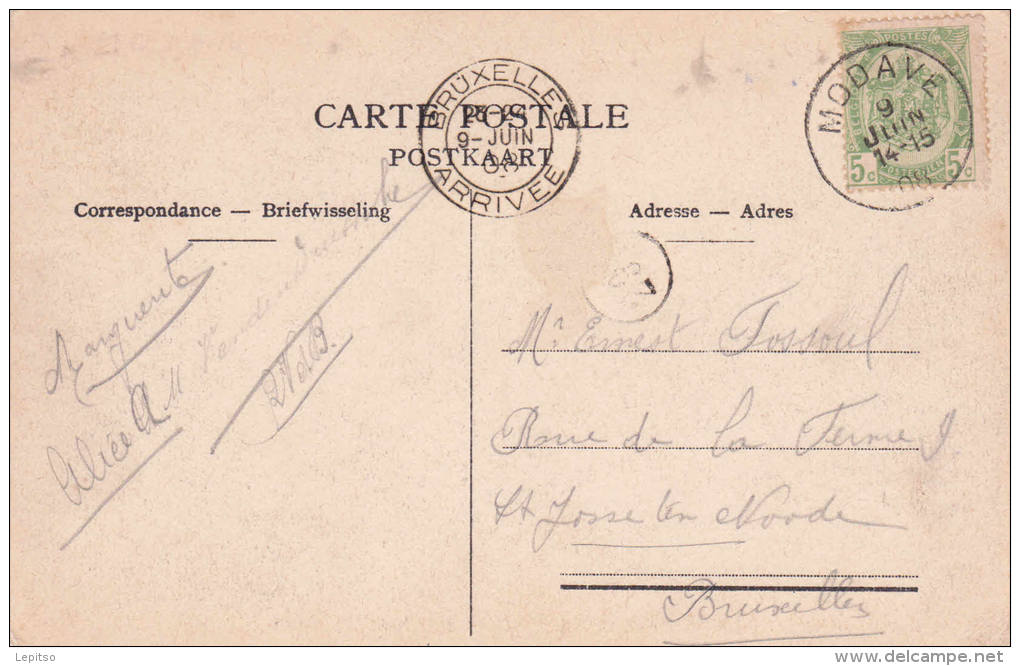 POSTES
5c 5c
MODAVE
9
JUIN
14-15
08
BRUXELLES
9-JUIN
08
ARRIVEE
CARTE POSTALE
POSTKAART
Correspondance — Briefwisseling
Adresse — Adres
Marguerite
Alice
Mr Ernest Fossoul
Rue de la Ferme 9
St Josse ten Noode
Bruxelles
Lepitso
www.delcampe.net